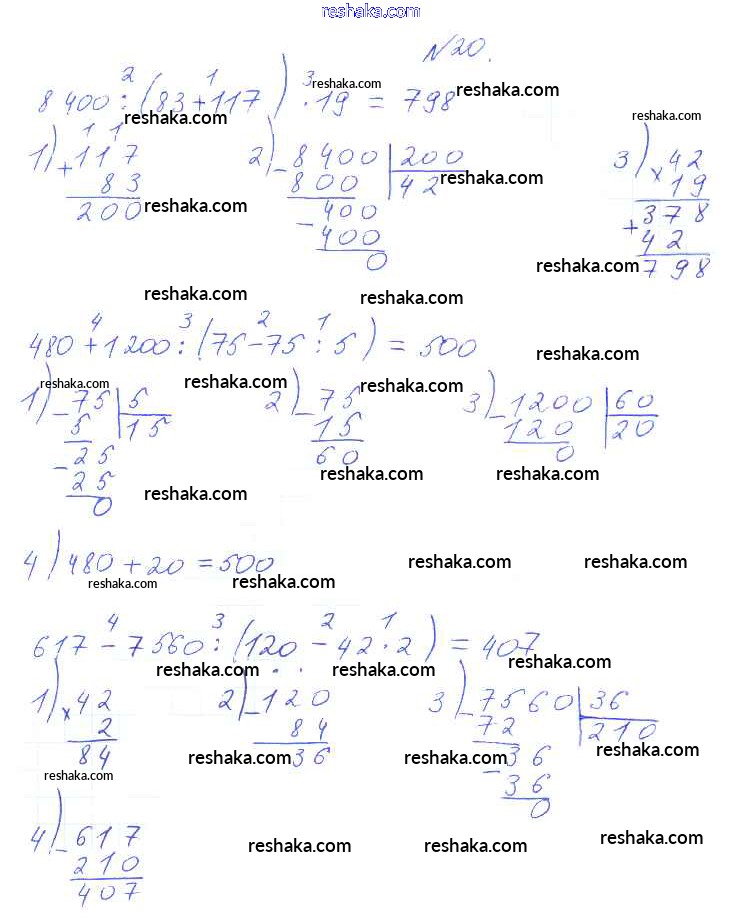 reshaka.com
N20.
2 1 3
8400:(83+117)·19=798
reshaka.com
reshaka.com
reshaka.com
reshaka.com
1) 1 1
+117
83
200
reshaka.com
2) -8400 200
800 42
reshaka.com
-400
400
0
3) ×42
19
+378
42
798
reshaka.com
reshaka.com
reshaka.com
4 3 2 1
480+1200:(75-75:5)=500
reshaka.com
reshaka.com
reshaka.com
reshaka.com
1) -75 5
5 15
-25
25
0
2) -75
15
60
3) -1200 60
120 20
0
reshaka.com
reshaka.com
reshaka.com
4) 480+20=500
reshaka.com
reshaka.com
reshaka.com
reshaka.com
4 3 2 1
617-7560:(120-42·2)=407
reshaka.com
reshaka.com
reshaka.com
1) ×42
2
84
2) -120
84
36
3) -7560 36
72 210
-36
36
0
reshaka.com
reshaka.com
reshaka.com
reshaka.com
4) -617
210
407
reshaka.com
reshaka.com
reshaka.com